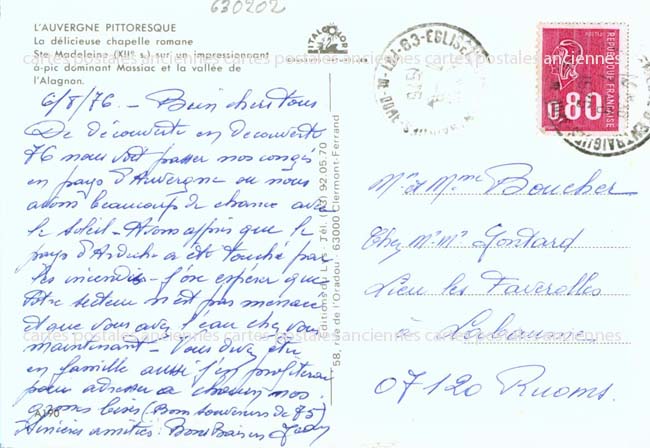 630202
L'AUVERGNE PITTORESQUE
La délicieuse chapelle romane
Ste Madeleine (XIIe s.) sur un impressionnant
à-pic dominant Massiac et la vallée de
l'Alagnon.
6/8/76. – Bien chers tous
De découverte en découverte
76 nous voit passer nos congés
en pays d'Auvergne où nous
avons beaucoup de chance avec
le soleil – Avons appris que le
pays d'Ardèche a été touché par
les incendies – J'ose espérer que
Votre secteur n'est pas menacé
et que vous avez l'eau chez vous
maintenant – Vous devez être
en famille aussi j'en profiterai
pour adresser à chacun nos
gros bises (Bons souvenirs de 75)
Sincères amitiés. Bons Baisers
A190
Editions du
Tél. (73) 92.05.70
58, rue de l'Oradou - 63000 Clermont-Ferrand
63-EGLISE
REPUBLIQUE FRANÇAISE
0.80
Mr et Mme Boucher
Chez Mr Mme Gontard
Lieu les Faverolles
à Labeaume
07120 Ruoms.
cartes postales anciennes